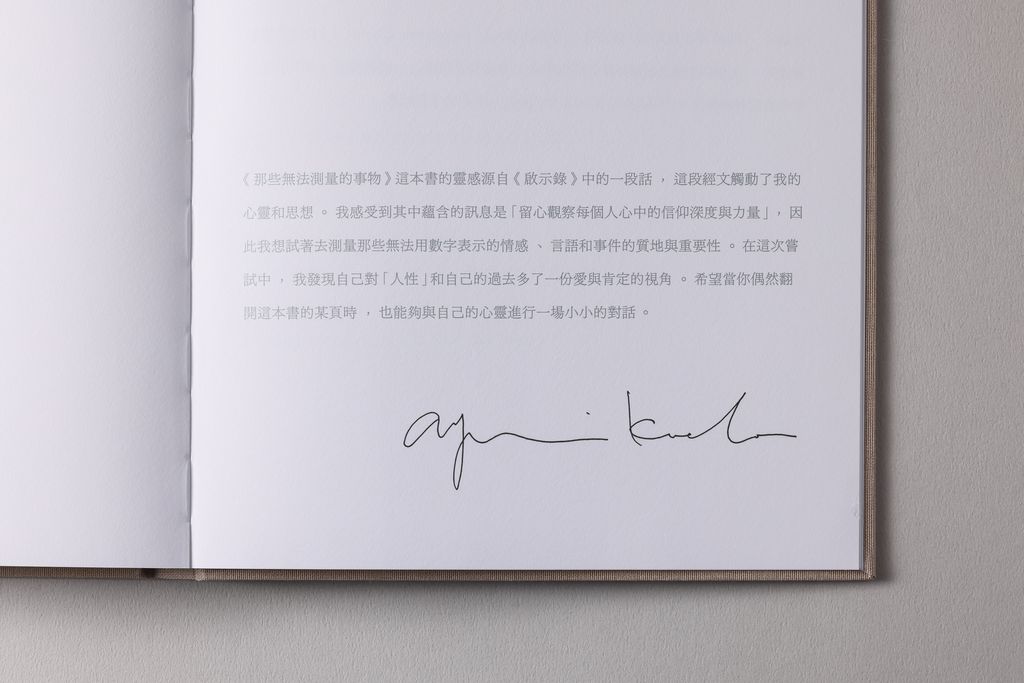 《那些無法測量的事物》這本書的靈感源自《啟示錄》中的一段話，這段經文觸動了我的
心靈和思想。我感受到其中蘊含的訊息是「留心觀察每個人心中的信仰深度與力量」，因
此我想試著去測量那些無法用數字表示的情感、言語和事件的質地與重要性。在這次嘗
試中，我發現自己對「人性」和自己的過去多了一份愛與肯定的視角。希望當你偶然翻
開這本書的某頁時，也能夠與自己的心靈進行一場小小的對話。